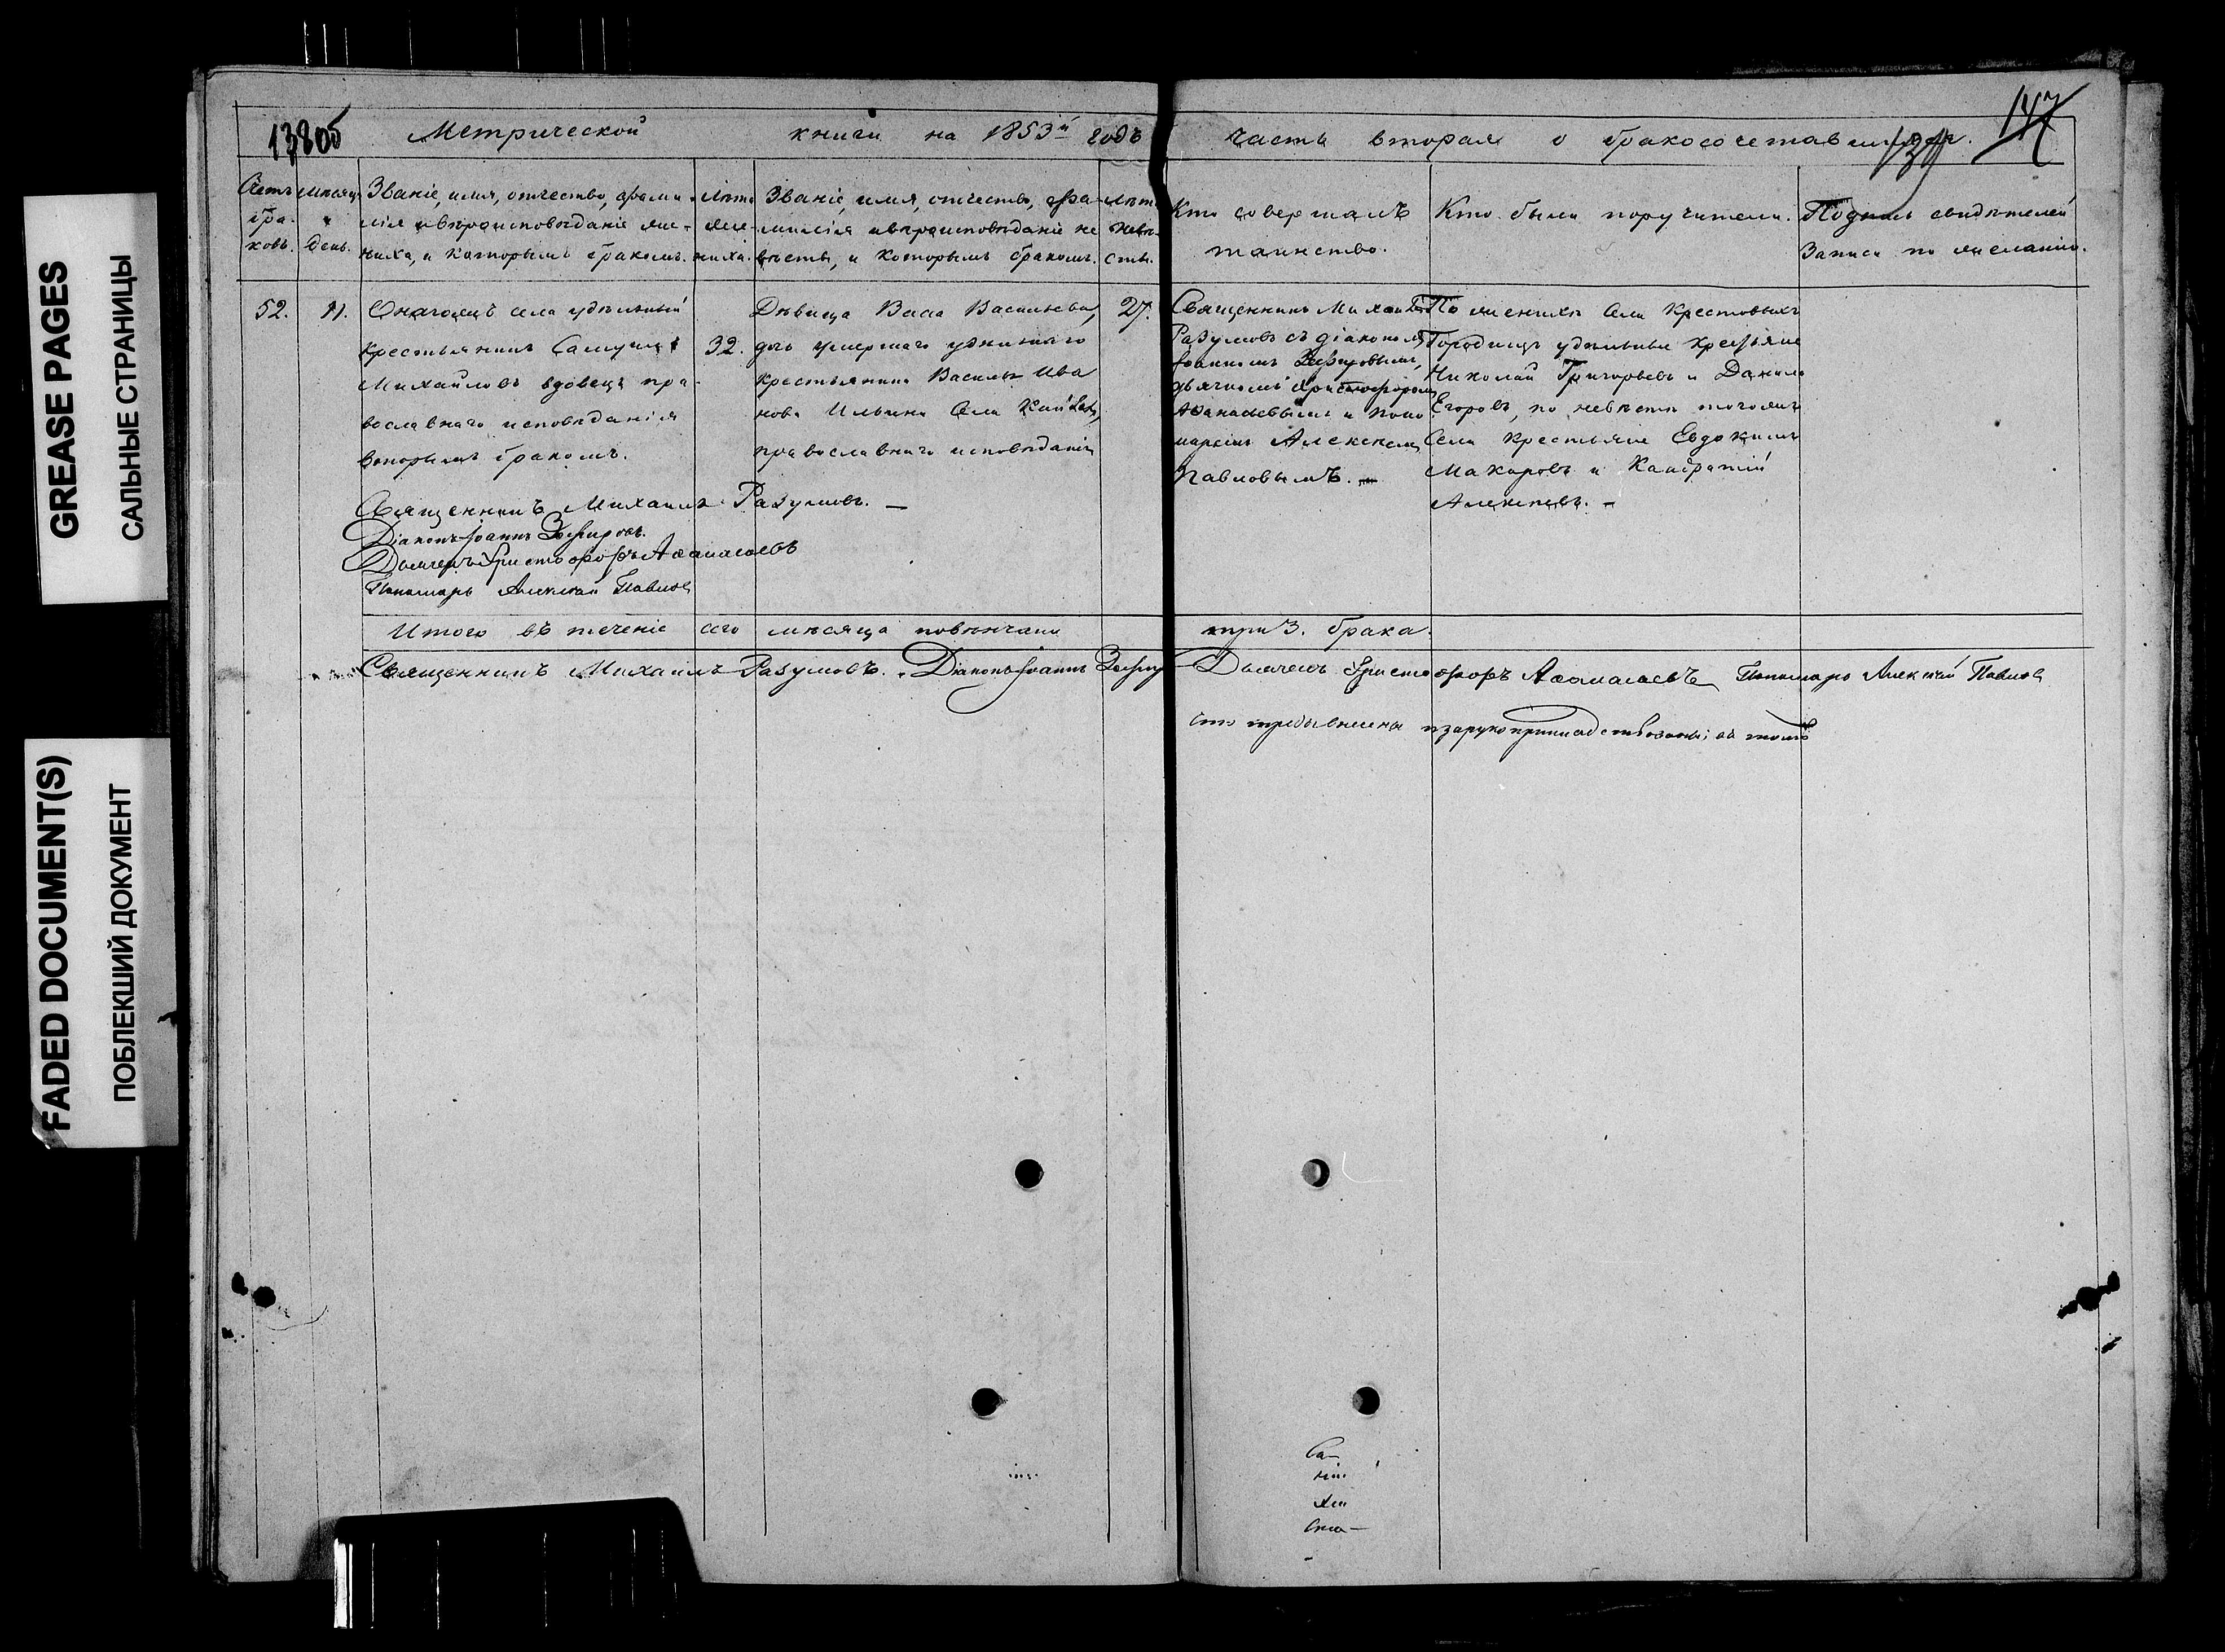 GREASE PAGES
САЛЬНЫЕ СТРАНИЦЫ
FADED DOCUMENT(S)
ПОБЛЕКШИЙ ДОКУМЕНТ
138об
147
Метрической книги на 1853й годъ часть вторая о бракосочетавшихся.
Счетъ бра-
ковъ.
Мѣсяцъ
и
день.
Званіе, имя, отчество, фами-
лія и вѣроисповѣданіе же-
ниха, и которымъ бракомъ.
Лѣта
же-
ниха.
Званіе, имя, отчество, фа-
милія и вѣроисповѣданіе не
вѣсты, и которымъ бракомъ.
Лѣта
невѣ-
сты.
Кто совершалъ
таинство.
Кто были поручители.
Подпись свидѣтелей
записи по желанію.
52.
11.
села удѣльный
крестьянинъ Самуилъ
Михайловъ вдовецъ пра-
вославнаго исповѣданія
вторымъ бракомъ.
32.
Дѣвица Васса Васильева,
дочь умершаго удѣльнаго
крестьянина Василья Ива
нова Ильина села
православнаго исповѣданія
27.
Священникъ Михаилъ
Разумовъ съ діакономъ
Іоанномъ Зефировымъ,
дьячкомъ Христофоромъ
Аѳанасьевымъ и поно
маремъ Алексѣемъ
Павловымъ. —
По женихѣ села Крестовыхъ
Городищъ удѣльные крестьяне
Николай Григорьевъ и Данило
Егоровъ, по невѣстѣ тогожъ
села крестьяне Евдокимъ
Макаровъ и Кандратій
Алексѣевъ. —
Священникъ Михаилъ Разумовъ. —
Діаконъ Іоаннъ Зефировъ.
Дьячекъ Христофоръ Аѳанасьевъ
Пономарь Алексѣй Павловъ
Итого въ теченіе сего мѣсяца повѣнчано три 3. брака.
Священникъ Михаилъ Разумовъ. Діаконъ Іоаннъ Зефировъ Дьячекъ Христофоръ Аѳанасьевъ Пономарь Алексѣй Павловъ